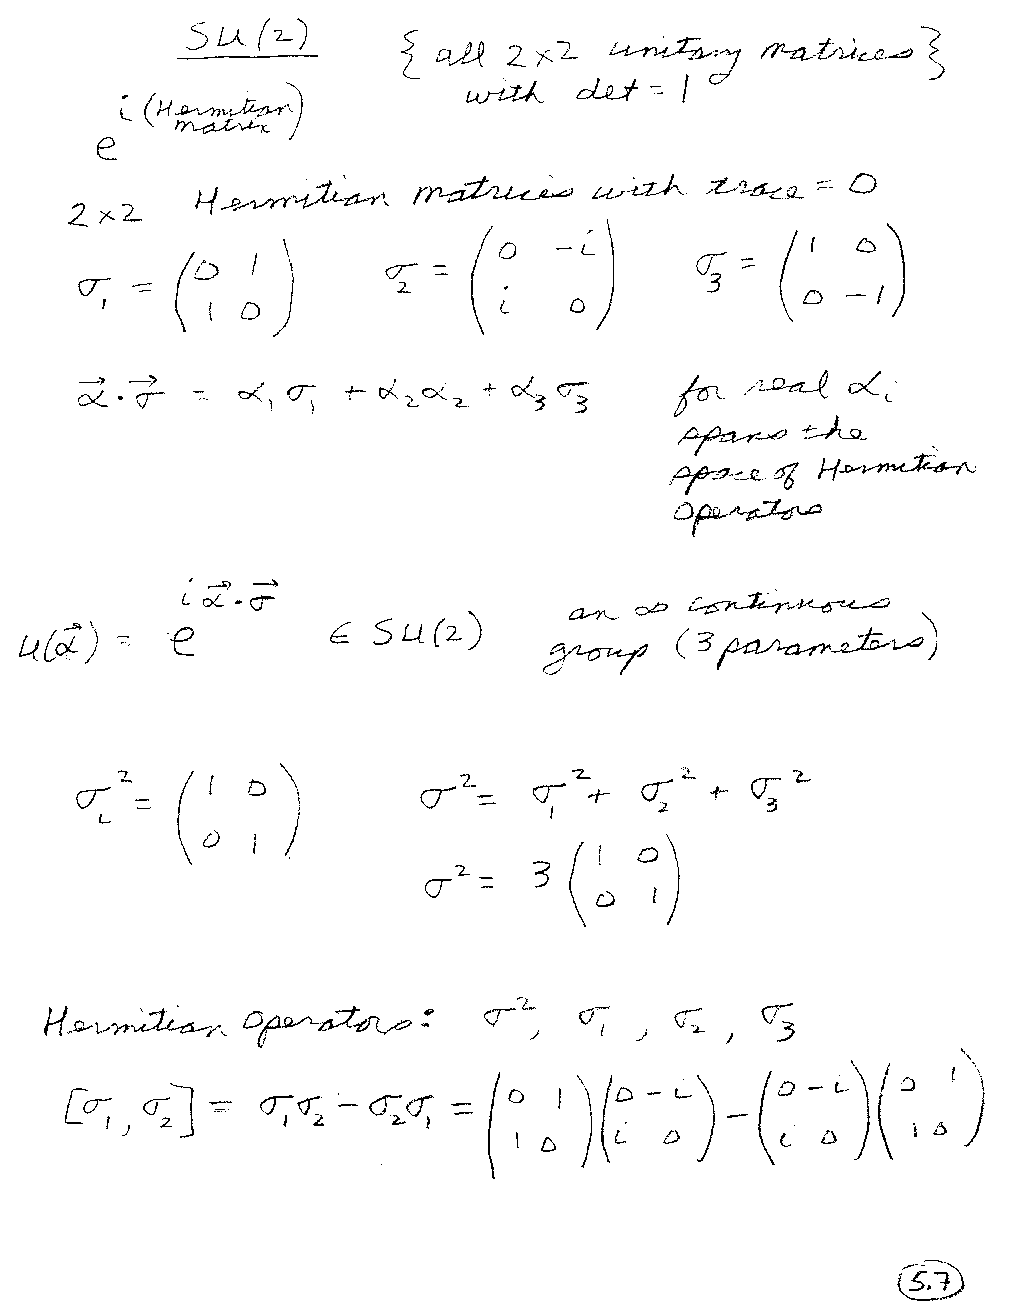 SU(2) { all 2×2 unitary matrices }
with det = 1
e^{i (Hermitian matrix)}
2×2 Hermitian matrices with trace = 0
σ₁ = (0 1; 1 0) σ₂ = (0 -i; i 0) σ₃ = (1 0; 0 -1)
α⃗·σ⃗ = α₁σ₁ + α₂α₂ + α₃σ₃ for real αᵢ
spans the
space of Hermitian
operators
u(α⃗) = e^{iα⃗·σ⃗} ∈ SU(2) an ∞ continuous
group (3 parameters)
σᵢ² = (1 0; 0 1) σ² = σ₁² + σ₂² + σ₃²
σ² = 3 (1 0; 0 1)
Hermitian operators: σ², σ₁, σ₂, σ₃
[σ₁, σ₂] = σ₁σ₂ - σ₂σ₁ = (0 1; 1 0)(0 -i; i 0) - (0 -i; i 0)(0 1; 1 0)
5.7